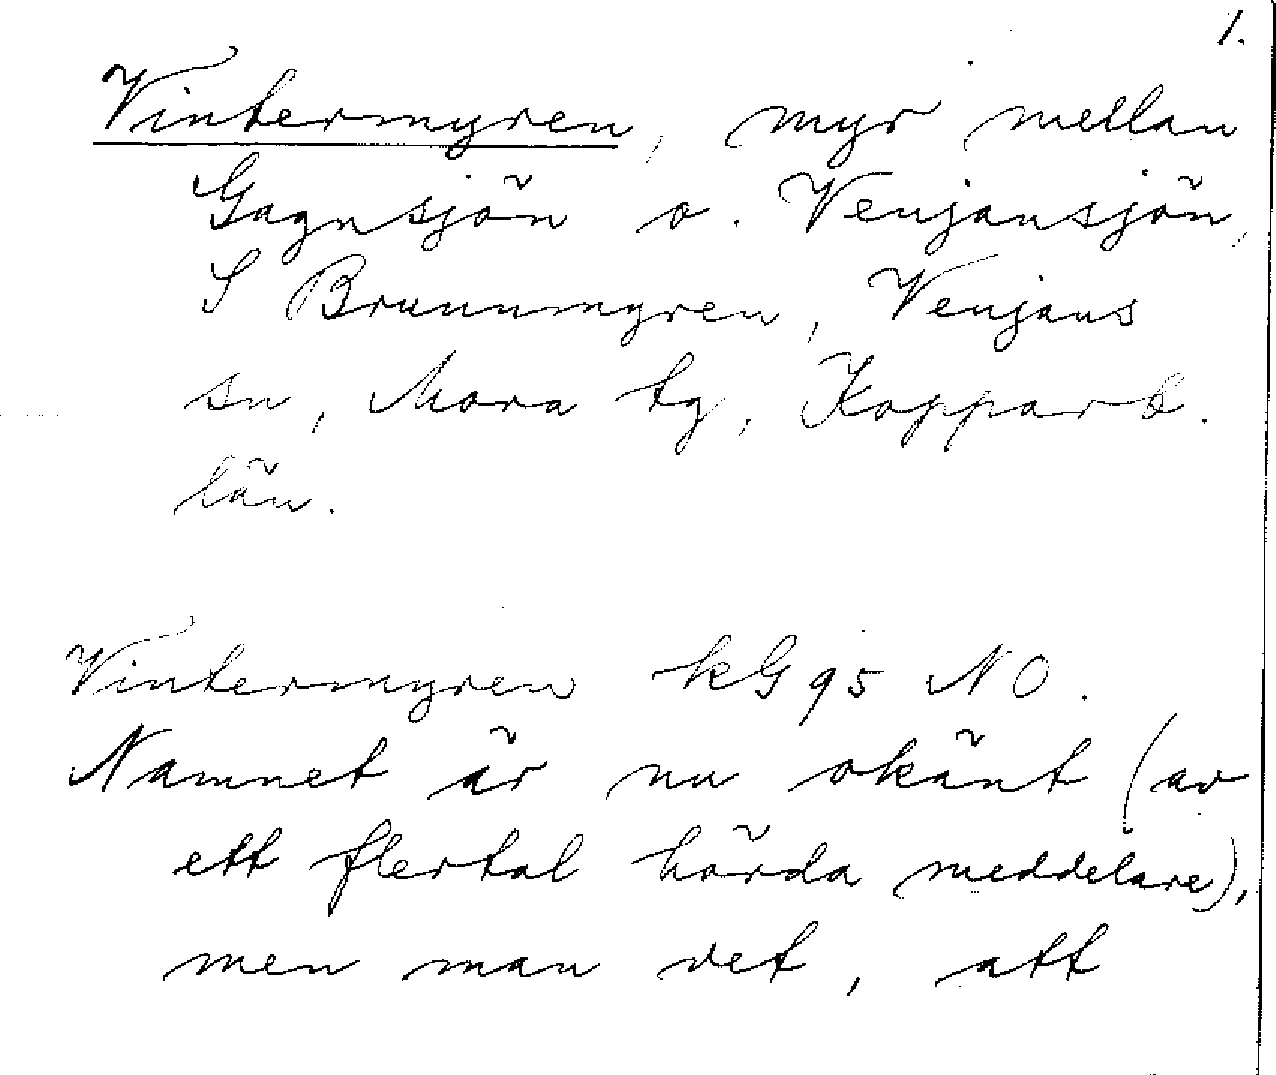 1.
Vintermyren, myr mellan
Gagnsjön o. Venjansjön,
S Brunnmyren, Venjans
sn, Mora tg, Kopparb.
län.
Vintermyren kG95 NO.
Namnet är nu okänt (av
ett flertal hörda meddelare),
men man vet, att